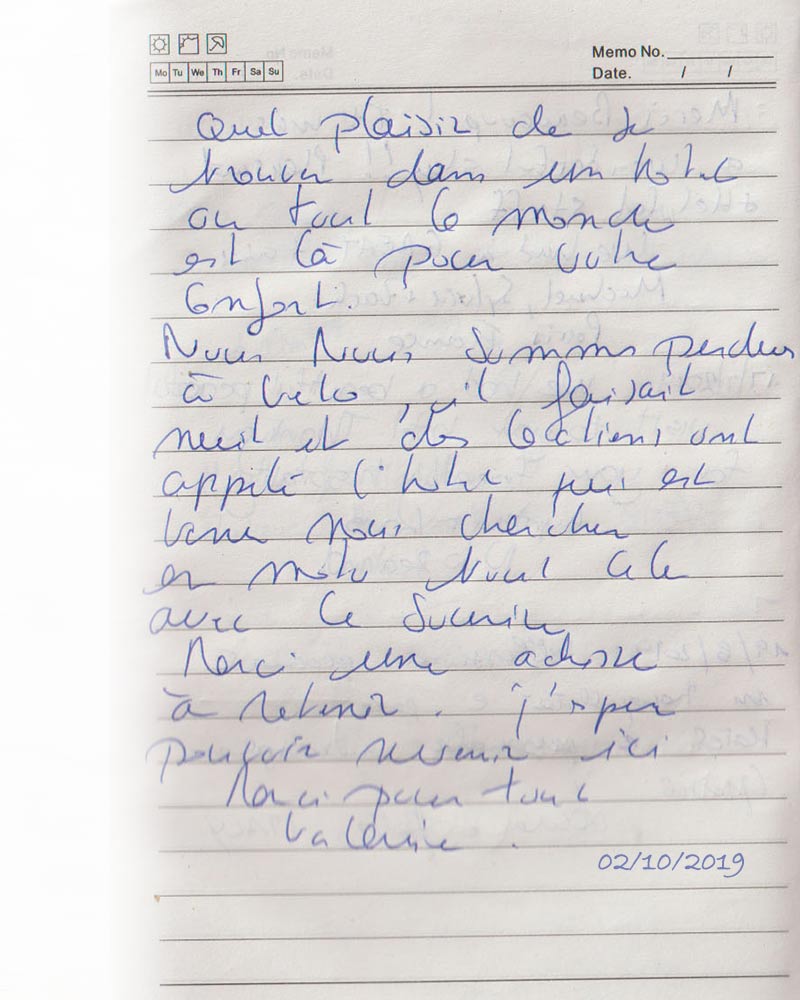 Memo No.
Mo Tu We Th Fr Sa Su
Date. / /
Quel plaisir de se
trouver dans un hotel
ou tout le monde
est là pour votre
confort.
Nous nous sommes perdus
à velo, il faisait
nuit et des locations ont
appelé l'hotel qui est
venu nous chercher
en moto tout cela
avec le sourire
Merci une adresse
à retenir. j'espere
pouvoir revenir ici
Merci pour tout
Valerie.
02/10/2019